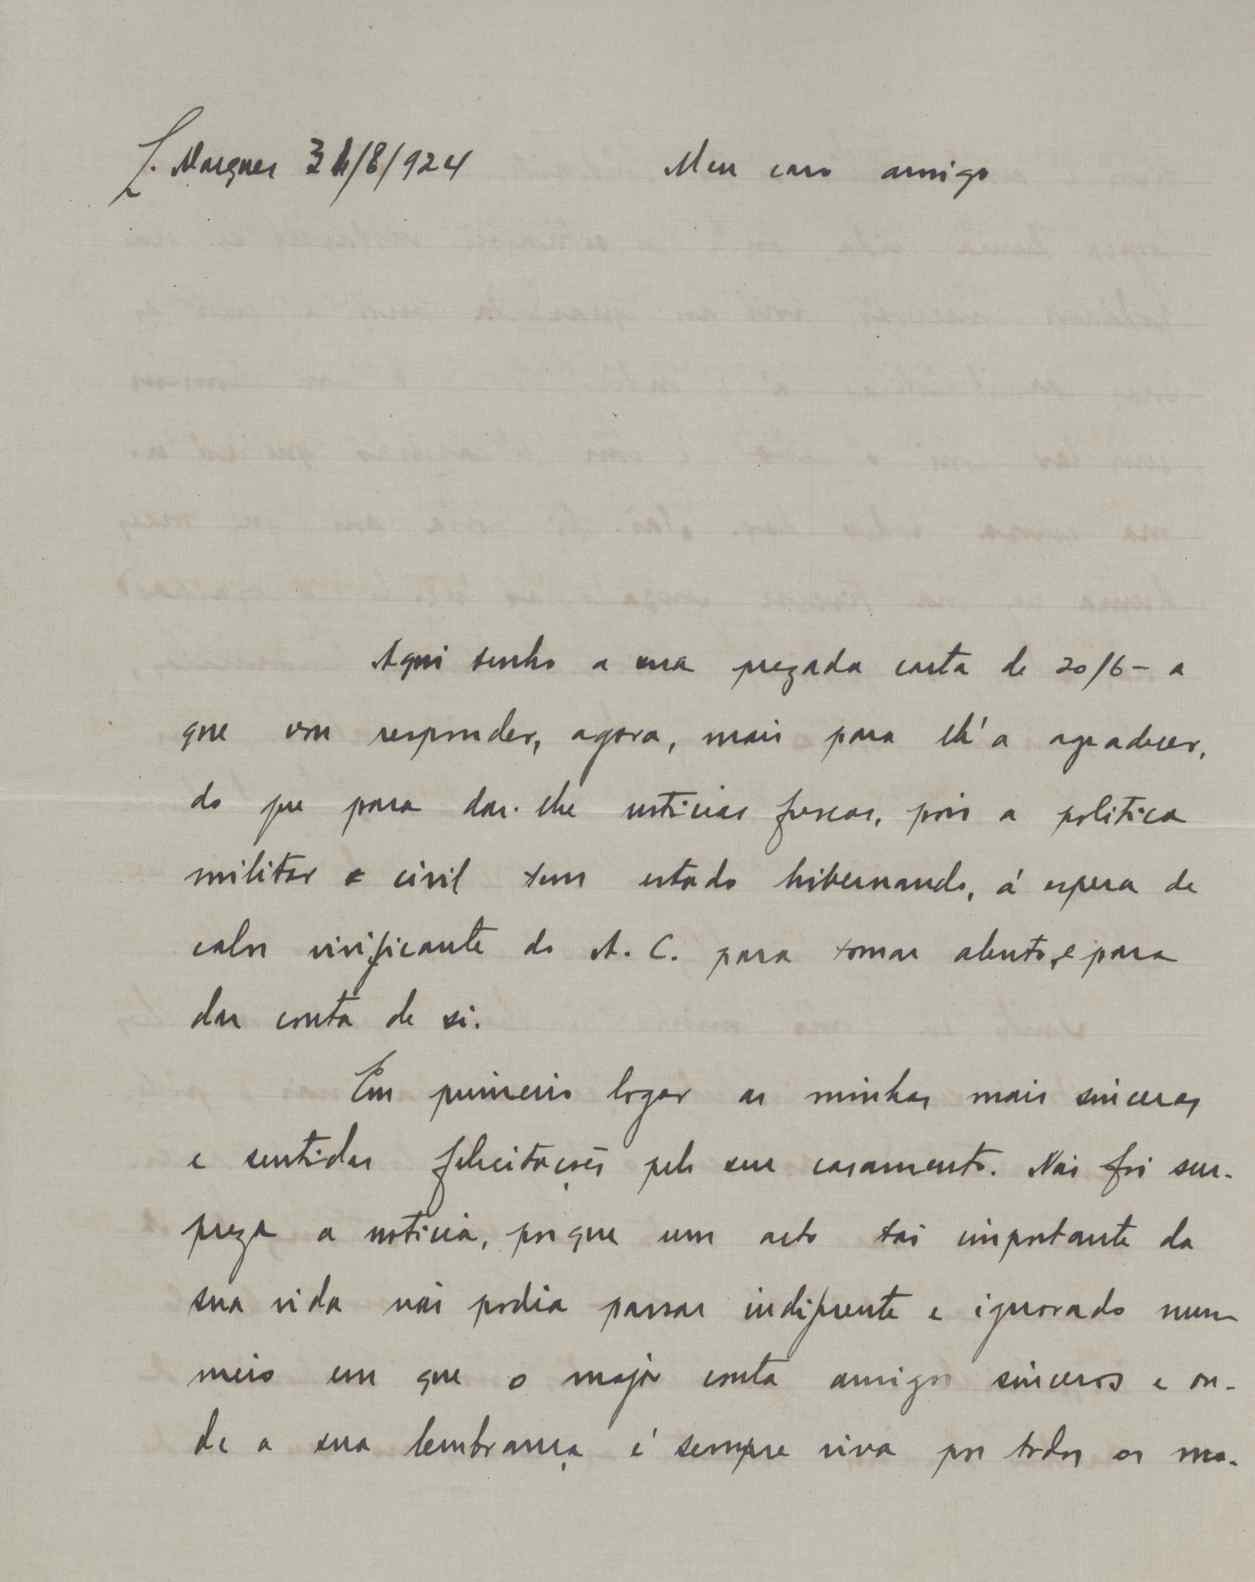 L. Marques 31/8/924 Meu caro amigo
Aqui tenho a sua prezada carta de 20/6 – a
que vou responder, agora, mais para lh'a agradecer,
do que para dar-lhe noticias frescas, pois a politica
militar e civil tem estado hibernando, á espera de
calor vivificante do A. C. para tomar alento, e para
dar conta de si.
Em primeiro logar as minhas mais sinceras
e sentidas felicitações pelo seu casamento. Não foi sur-
preza a noticia, porque um acto tão importante da
sua vida não podia passar indiferente e ignorado num
meio em que o major conta amigos sinceros e on-
de a sua lembrança é sempre viva por todos os mo-